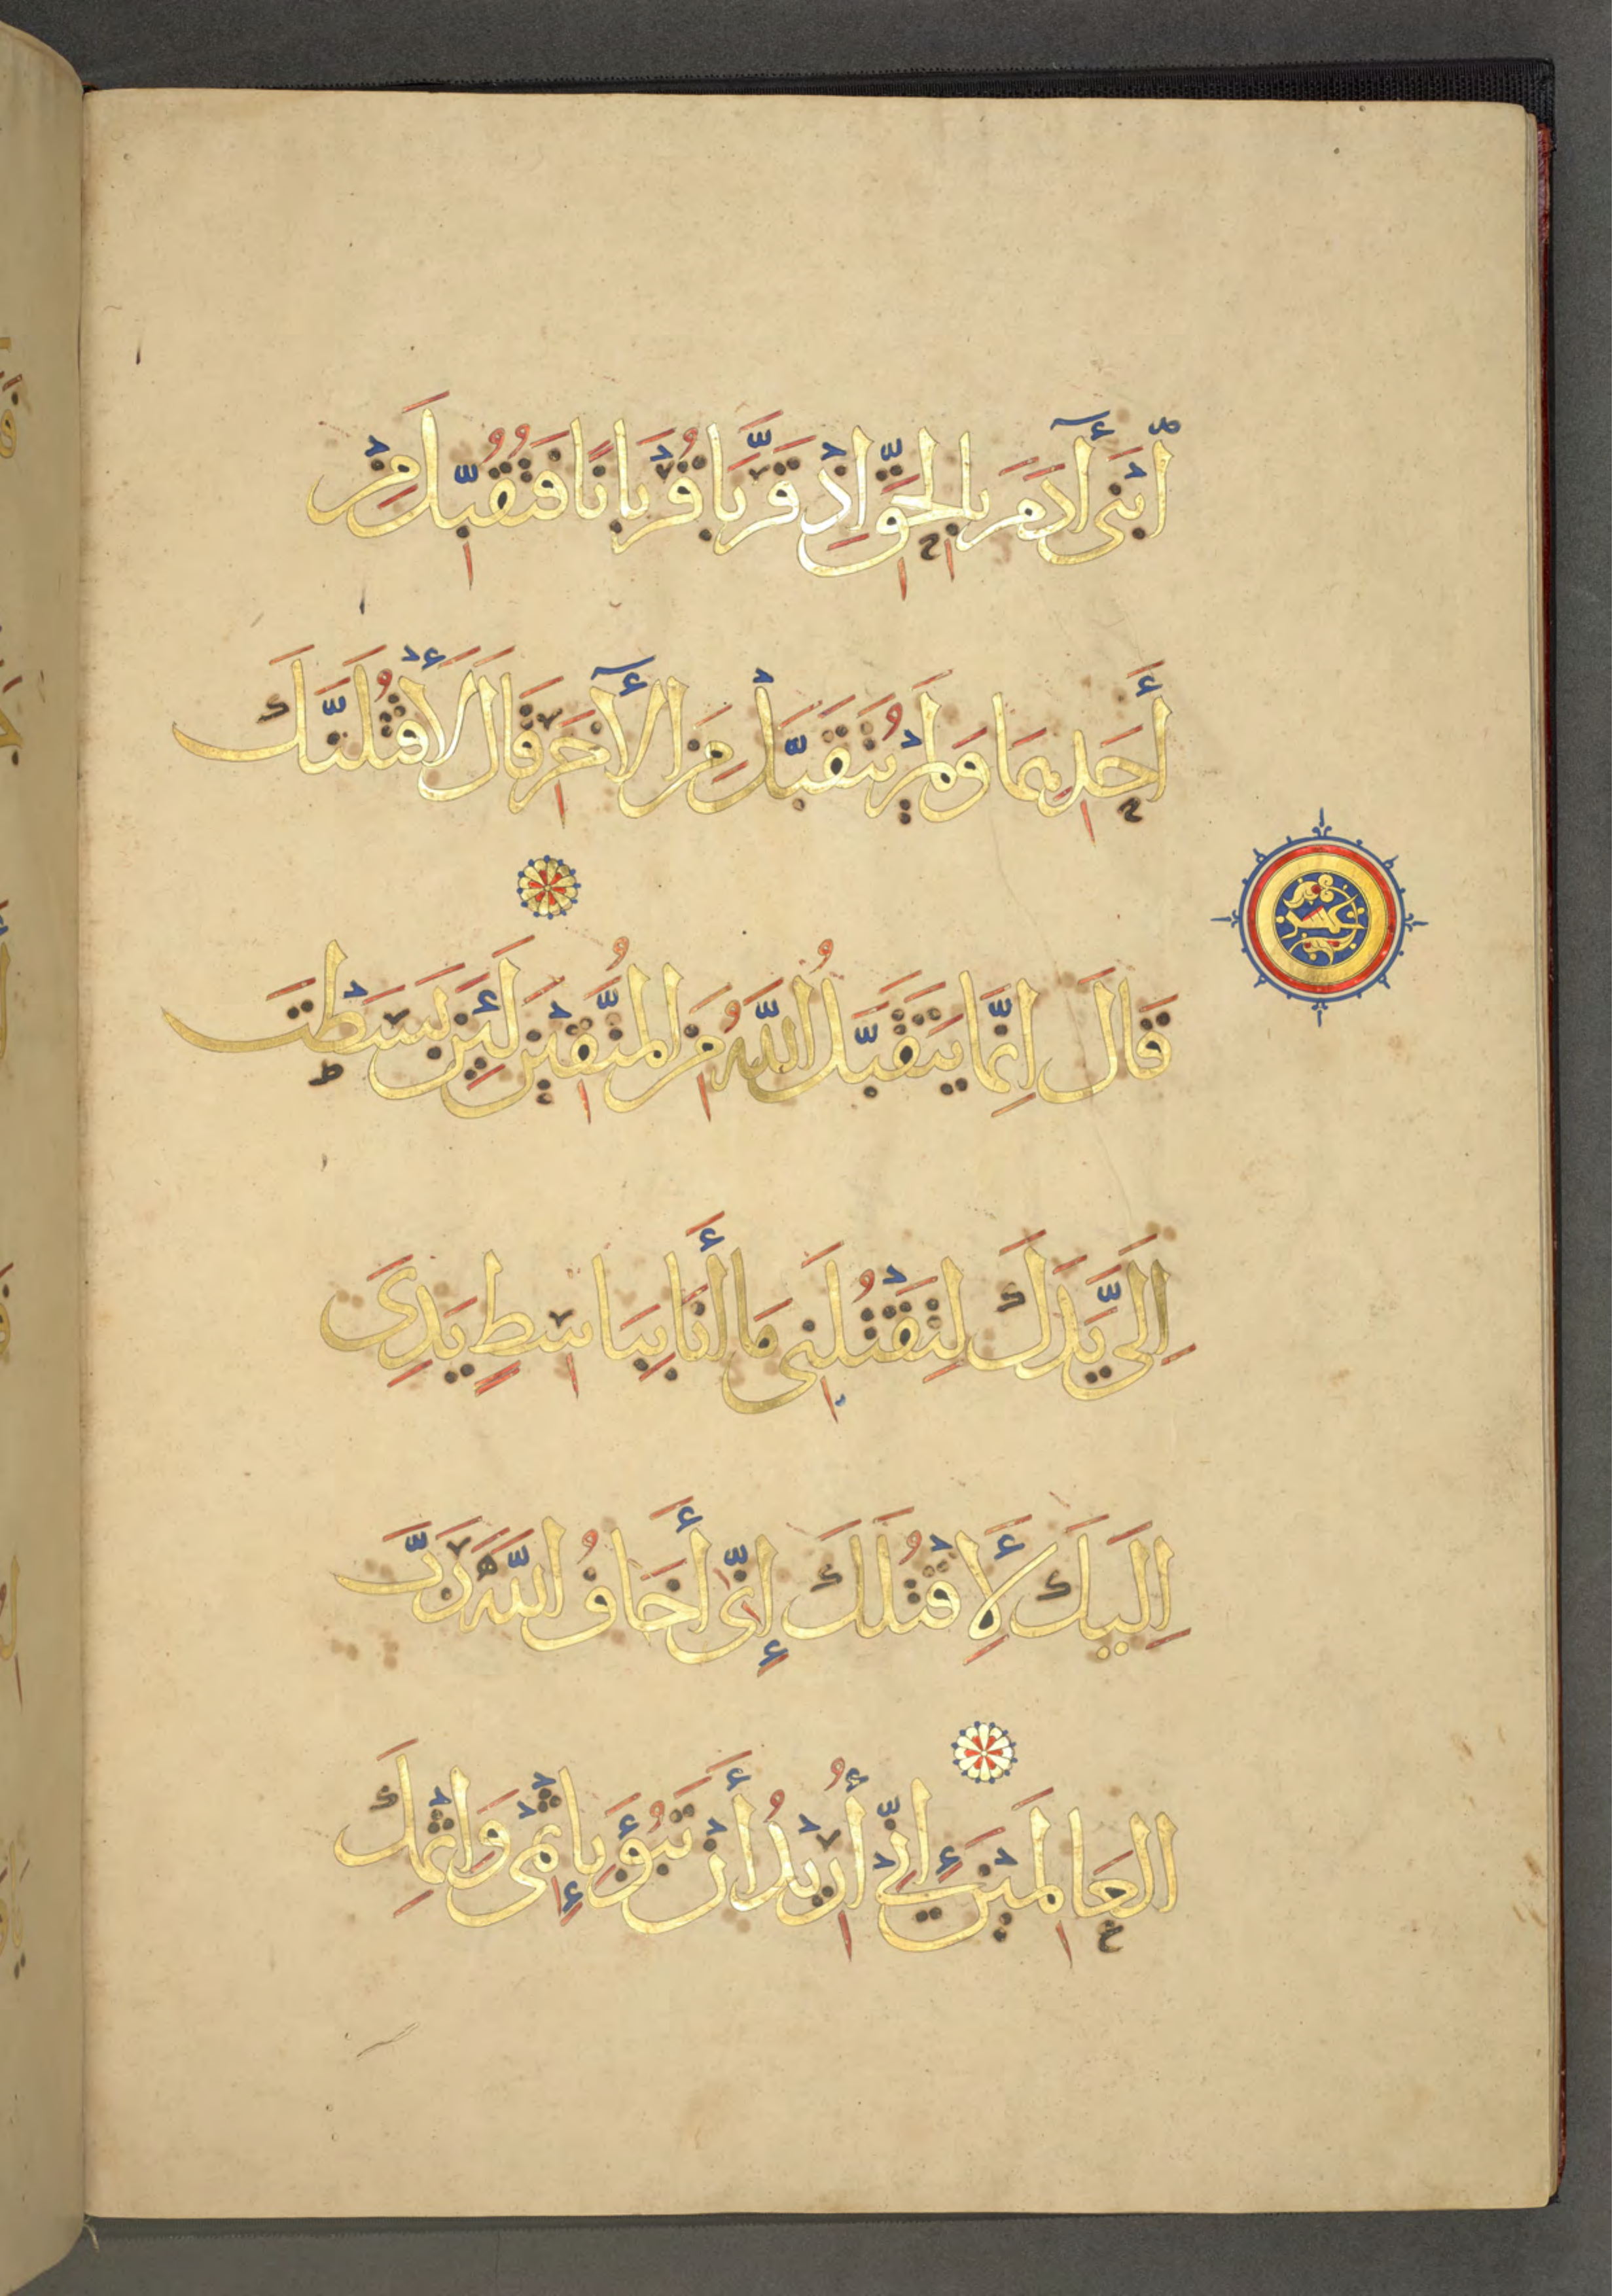 ابْنَىْ آدَمَ بِالْحَقِّ اِذْ قَرَّبَا قُرْبَانًا فَتُقُبِّلَ مِنْ
أَحَدِهِمَا وَلَمْ يُتَقَبَّلْ مِنَ الْآخَرِ قَالَ لَأَقْتُلَنَّكَ
قَالَ اِنَّمَا يَتَقَبَّلُ اللَّهُ مِنَ الْمُتَّقِيْنَ لَئِنْ بَسَطْتَ
اِلَىَّ يَدَكَ لِتَقْتُلَنِى مَا أَنَا بِبَاسِطٍ يَدِىَ
اِلَيْكَ لِأَقْتُلَكَ إِنِّى أَخَافُ اللَّهَ رَبَّ
الْعَالَمِيْنَ إِنِّى أُرِيْدُ أَنْ تَبُوْءَ بِإِثْمِى وَاِثْمِكَ